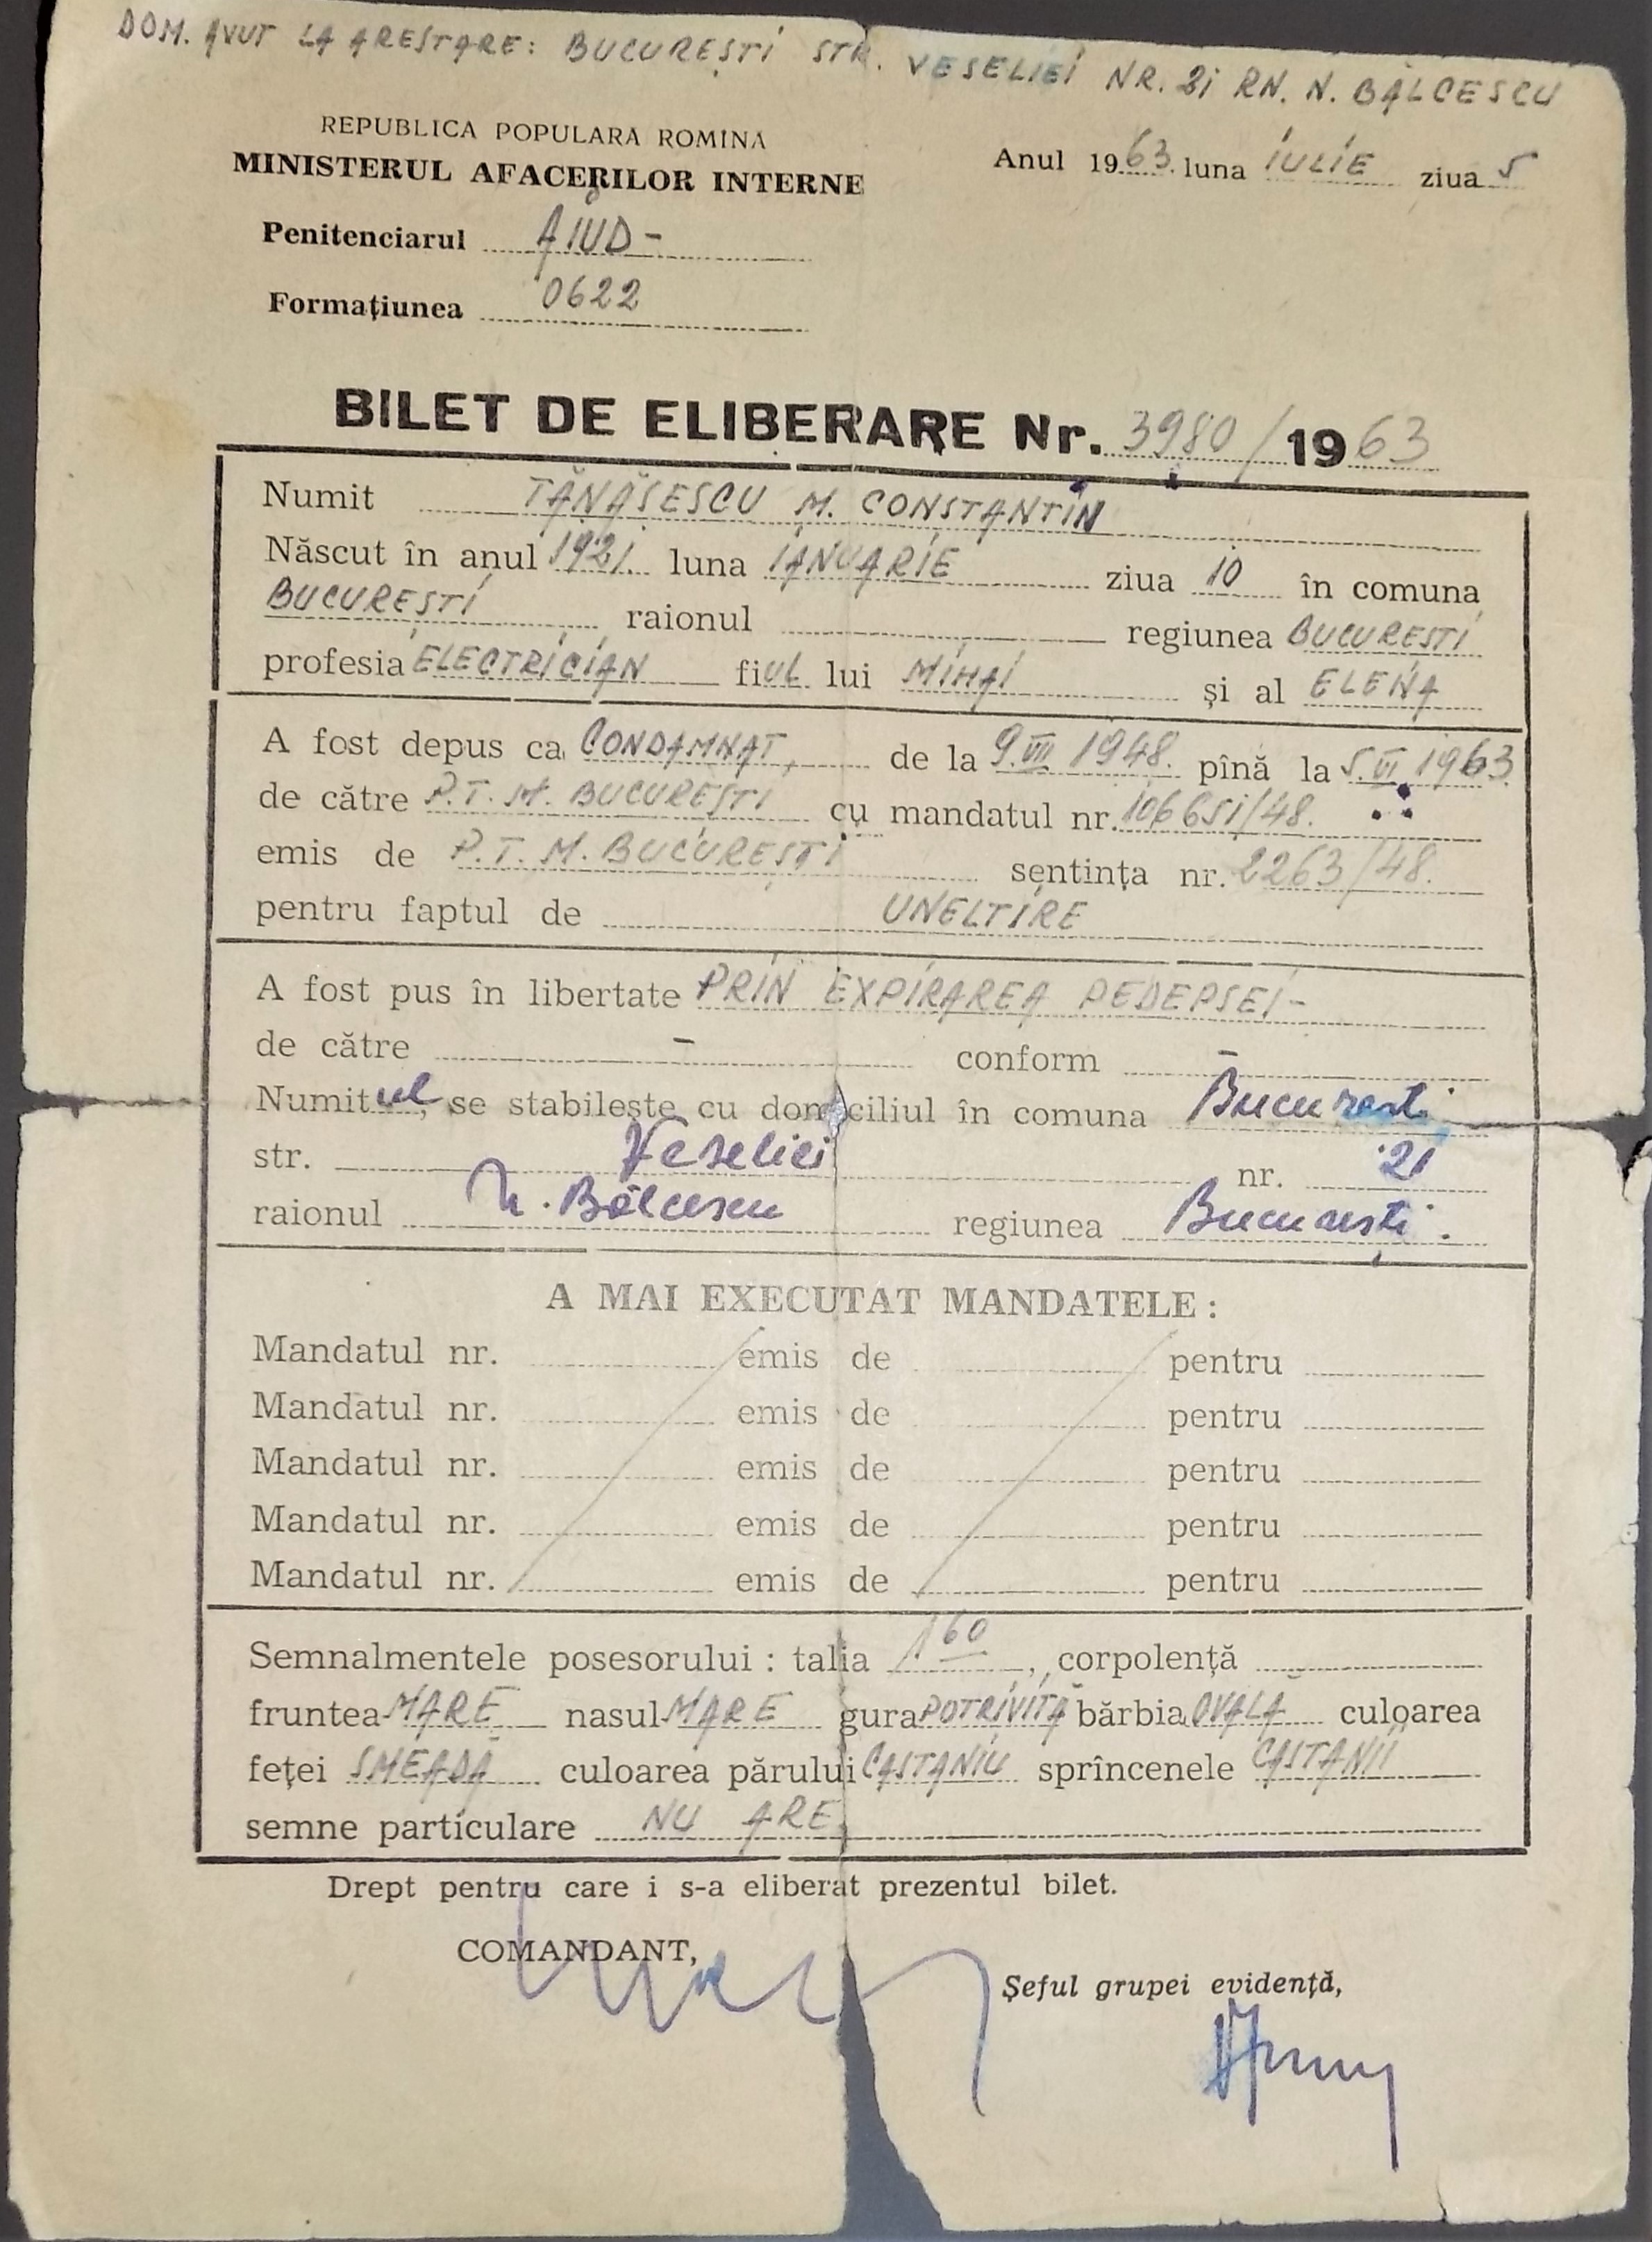 DOM. AVUT LA ARESTARE: BUCUREȘTI STR. VESELIEI NR. 21 RN. N. BĂLCESCU
REPUBLICA POPULARA ROMINA
MINISTERUL AFACERILOR INTERNE
Anul 1963 luna IULIE ziua 5
Penitenciarul AIUD-
Formațiunea 0622
BILET DE ELIBERARE Nr. 3980/1963
Numit TĂNĂSESCU M. CONSTANTIN
Născut în anul 1921. luna IANUARIE ziua 10 în comuna
BUCUREȘTI raionul regiunea BUCUREȘTI
profesia ELECTRICIAN fiUL lui MIHAI și al ELENA
A fost depus ca CONDAMNAT, de la 9.VII 1948. pînă la 5.VI 1963.
de către P.T.M. BUCUREȘTI cu mandatul nr. 106651/48.
emis de P.T.M. BUCUREȘTI sentința nr. 2263/48.
pentru faptul de UNELTIRE
A fost pus în libertate PRIN EXPIRAREA PEDEPSEI-
de către - conform -
Numitul, se stabilește cu domiciliul în comuna București
str. Veseliei nr. 21
raionul N. Bălcescu regiunea București.
A MAI EXECUTAT MANDATELE :
Mandatul nr. emis de pentru
Mandatul nr. emis de pentru
Mandatul nr. emis de pentru
Mandatul nr. emis de pentru
Mandatul nr. emis de pentru
Semnalmentele posesorului : talia 160, corpolență
fruntea MARE nasul MARE gura POTRIVITĂ bărbia OVALĂ culoarea
feței SMEADĂ culoarea părului CASTANIU sprîncenele CASTANII
semne particulare NU ARE
Drept pentru care i s-a eliberat prezentul bilet.
COMANDANT,
Șeful grupei evidență,